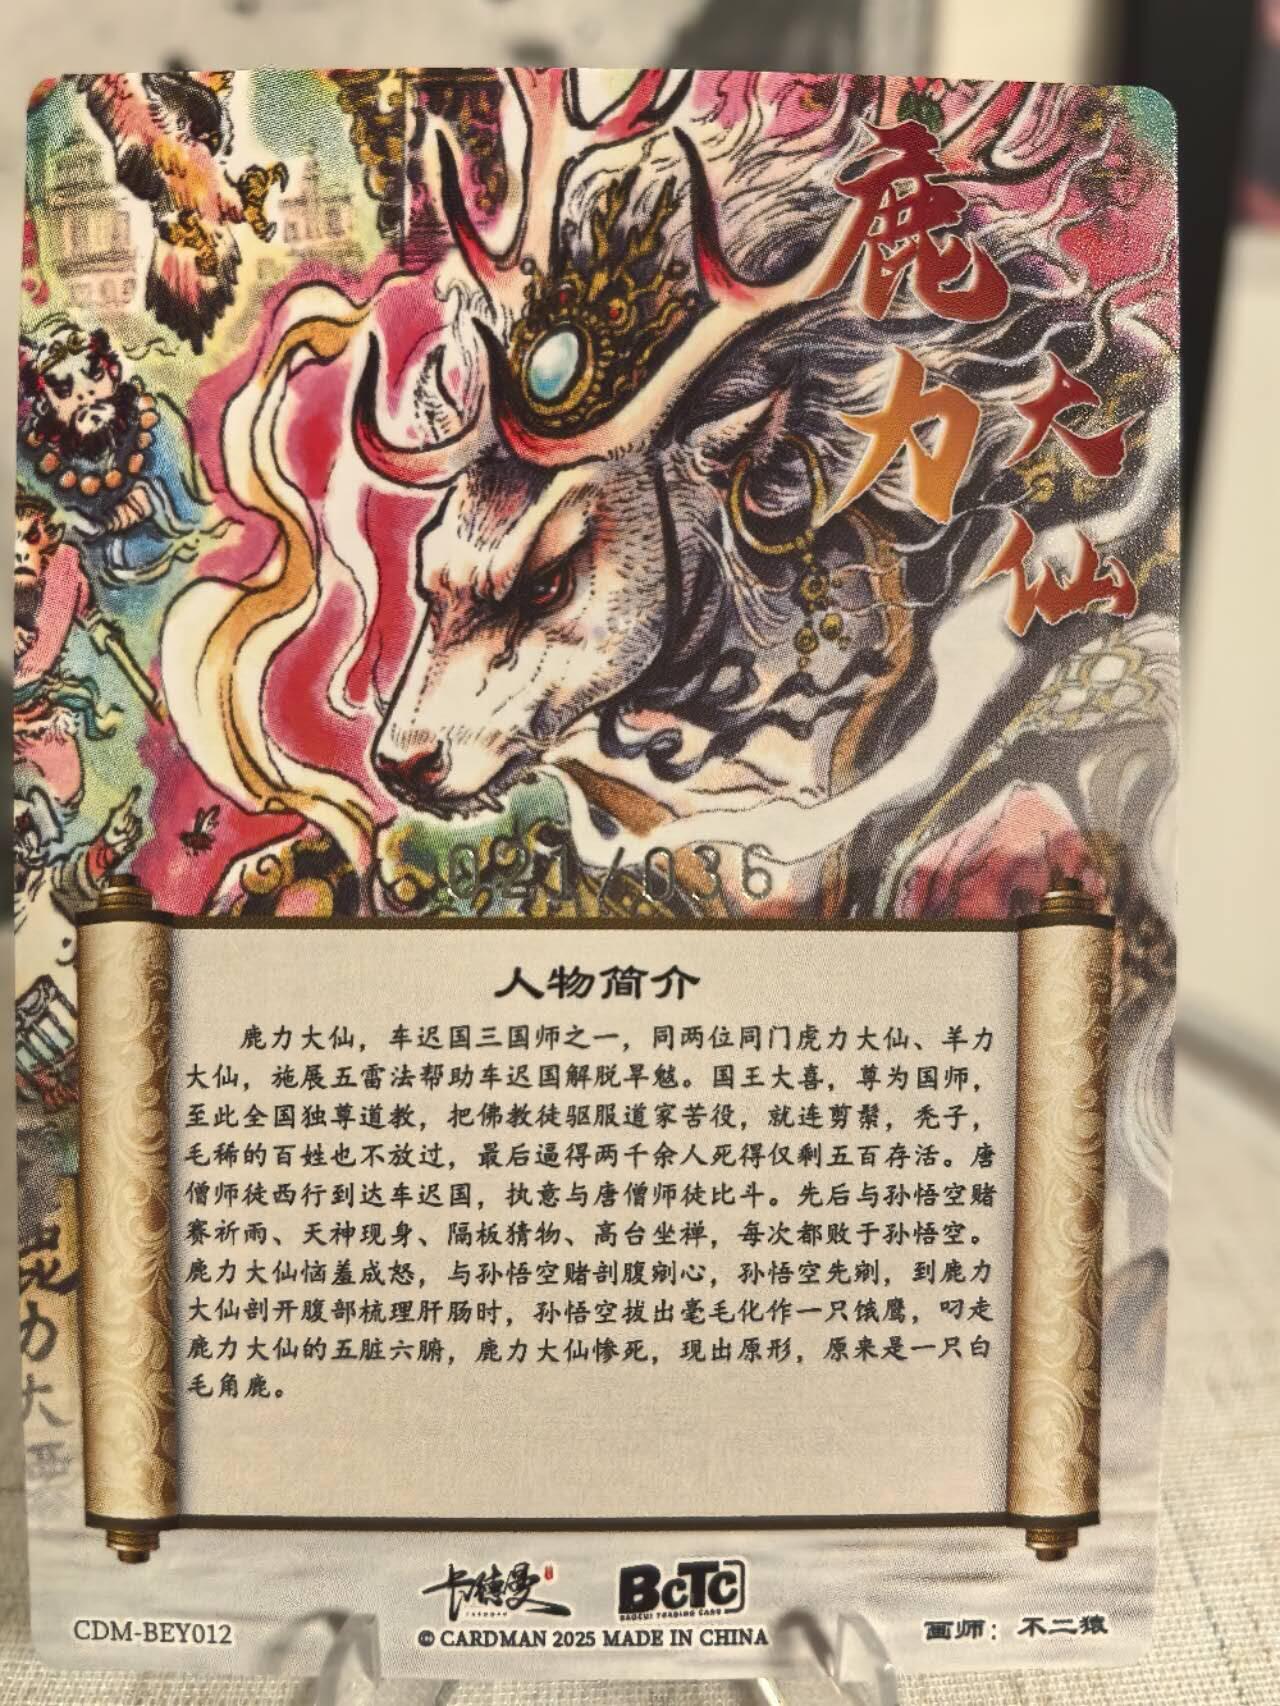 鹿力大仙
021/036
人物简介
鹿力大仙，车迟国三国师之一，同两位同门虎力大仙、羊力
大仙，施展五雷法帮助车迟国解脱旱魃。国王大喜，尊为国师，
至此全国独尊道教，把佛教徒驱服道家苦役，就连剪鬃，秃子，
毛稀的百姓也不放过，最后逼得两千余人死得仅剩五百存活。唐
僧师徒西行到达车迟国，执意与唐僧师徒比斗。先后与孙悟空赌
赛祈雨、天神现身、隔板猜物、高台坐禅，每次都败于孙悟空。
鹿力大仙恼羞成怒，与孙悟空赌剖腹剜心，孙悟空先剜，到鹿力
大仙剖开腹部梳理肝肠时，孙悟空拔出毫毛化作一只饿鹰，叼走
鹿力大仙的五脏六腑，鹿力大仙惨死，现出原形，原来是一只白
毛角鹿。
力大
卡德曼
BCTC
CDM-BEY012
© CARDMAN 2025 MADE IN CHINA
画师：不二猿